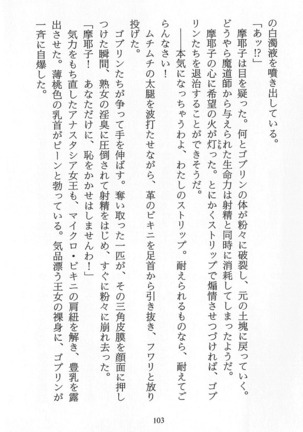 の白濁液を噴き出している。
「あッ!?」
摩耶子は目を疑った。何とゴブリンの体が粉々に破裂し、元の土塊に戻っていく。
どうやら魔道師から与えられた生命力は射精と同時に消耗してしまったようだ。
摩耶子の胸に希望の火が灯った。とにかくストリップで煽情させつづければ、ゴブ
リンたちを退治することができそうだ。
――本気になっちゃうわよ、わたしのストリップ。耐えられるものなら、耐えてご
らんなさい!
ムチムチの太腿を波打たせながら、革のビキニを足首から引き抜き、フワリと放り
投げた。
ゴブリンたちが争って手を伸ばす。奪い取った一匹が、その三角皮膜を顔面に押し
つけた瞬間、熟女の淫臭に圧倒されて射精をはじめ、すぐに粉々に崩れ去った。
「摩耶子! あなただけに、恥をかかせはしませんわ!」
気力をもち直したアナスタシア女王も、マイクロ・ビキニの肩紐を解き、豊乳を露
出させた。薄桃色の乳首がピーンと勃っている。気品漂う王女の裸身に、ゴブリンが
一斉に自爆した。
103